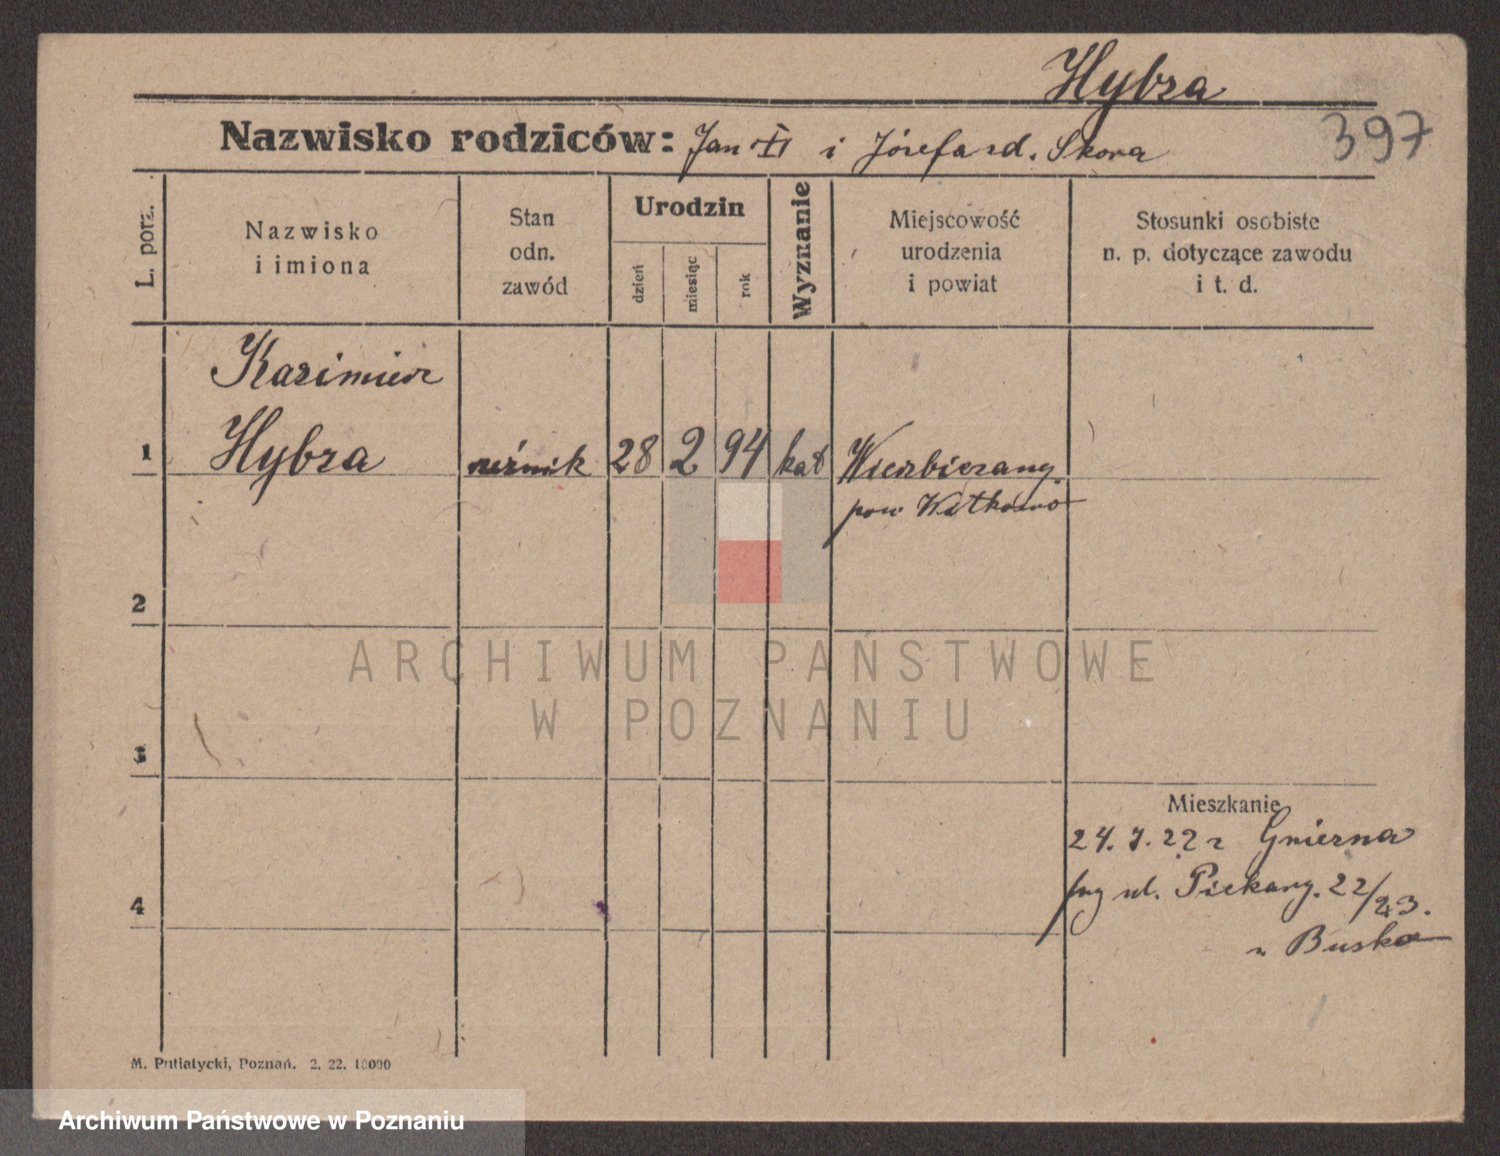 Hybza
Nazwisko rodziców: Jan i Józefa zd. Skora
397
L. porz.
Nazwisko
i imiona
Stan
odn.
zawód
Urodzin
dzień
miesiąc
rok
Wyznanie
Miejscowość
urodzenia
i powiat
Stosunki osobiste
n. p. dotyczące zawodu
i t. d.
Kazimierz
1 Hybza rzeźnik 28 2 94 kat Wierzbiczany
pow Witkowo
2
ARCHIWUM PAŃSTWOWE
W POZNANIU
3
Mieszkanie
24. 7. 22 z Gniezna
ul. Piekary. 22/23.
u Busko
4
M. Putiatycki, Poznań. 2. 22. 10000
Archiwum Państwowe w Poznaniu